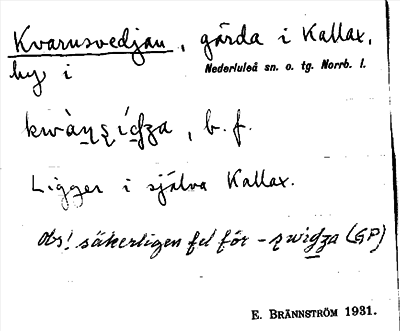 Kvarnsvedjan, gärda i Kallax,
by i Nederluleå sn. o. tg. Norrb. l.
kwàṇṣíd̠z̠a, b. f.
Ligger i själva Kallax.
Obs! säkerligen fel för -ṣwid̠z̠a (GP)
E. BRÄNNSTRÖM 1931.